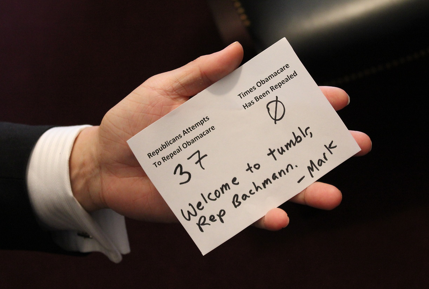 Republicans Attempts
To Repeal Obamacare
37
Times Obamacare
Has Been Repealed
Ø
Welcome to tumblr,
Rep Bachmann.
-Mark